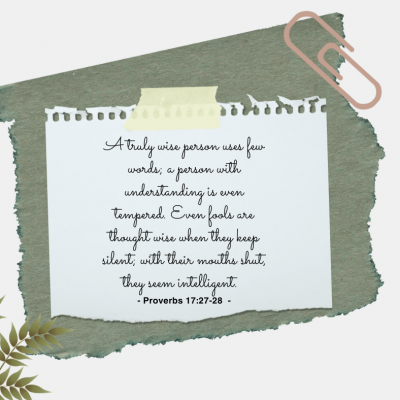 A truly wise person uses few
words; a person with
understanding is even
tempered. Even fools are
thought wise when they keep
silent; with their mouths shut,
they seem intelligent.
- Proverbs 17:27-28 -